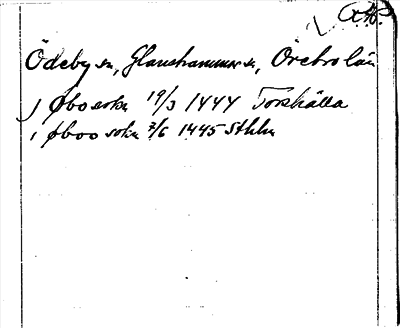 Ödeby sn, Glanshammars sn, Örebro län
j Øbo sokn 19/3 1444 Torshälla
i Øboo sokn 7/6 1445 Sthlm